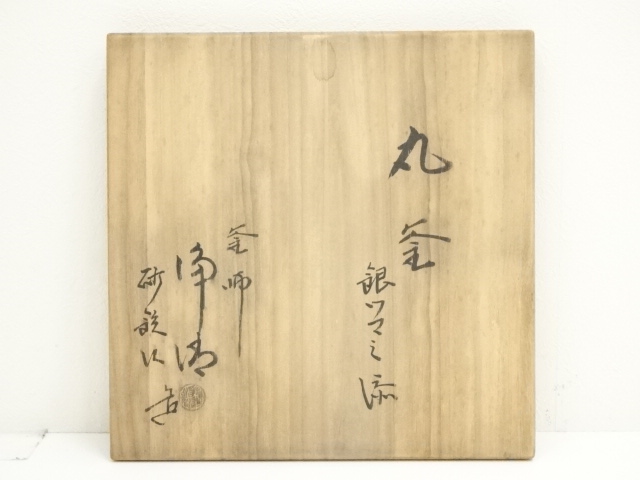 丸釜
銀ツマミ添
釜師
浄清
砂鉄以造